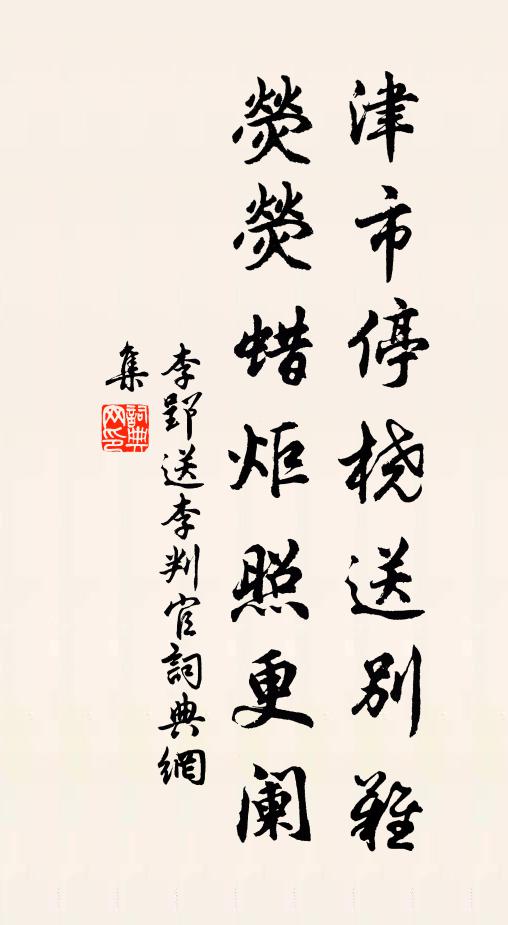 津市停桡送别難
熒熒蜡炬照更阑
李郢送李判官詞典網
集
詞典網印